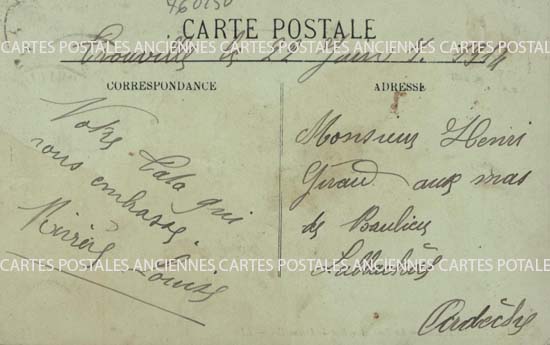 460150
CARTE POSTALE
CARTES POSTALES ANCIENNES CARTES POSTALES ANCIENNES CARTES POSTALES
Trouville le 22 Juin 1914
CORRESPONDANCE
ADRESSE
Votre Lala qui
vous embrasse.
Louise
Monsieur Henri
Giraud aux mas
de Baulieu
CARTES POSTALES ANCIENNES CARTES POSTALES ANCIENNES CARTES POSTALES
Ardèche